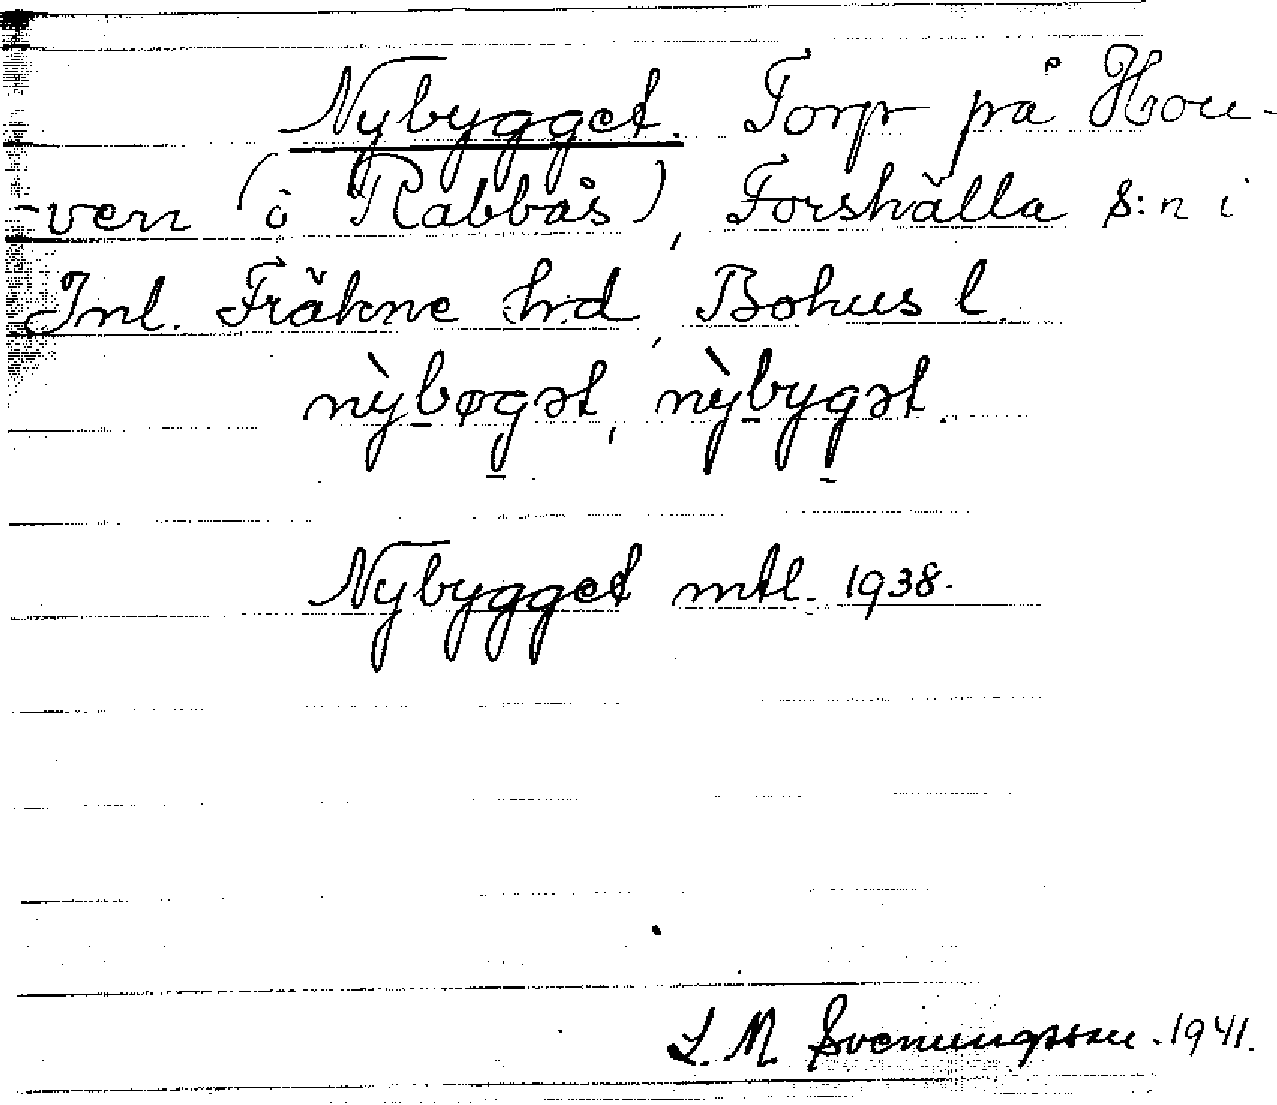 Nybygget. Torp på Hou-
-ven (i Rabbås), Forshälla s:n i
Inl. Fräkne hrd, Bohus l.
nỳbøgət, nỳbygət.
Nybygget mtl. 1938.
L. M Svenungsson. 1941.